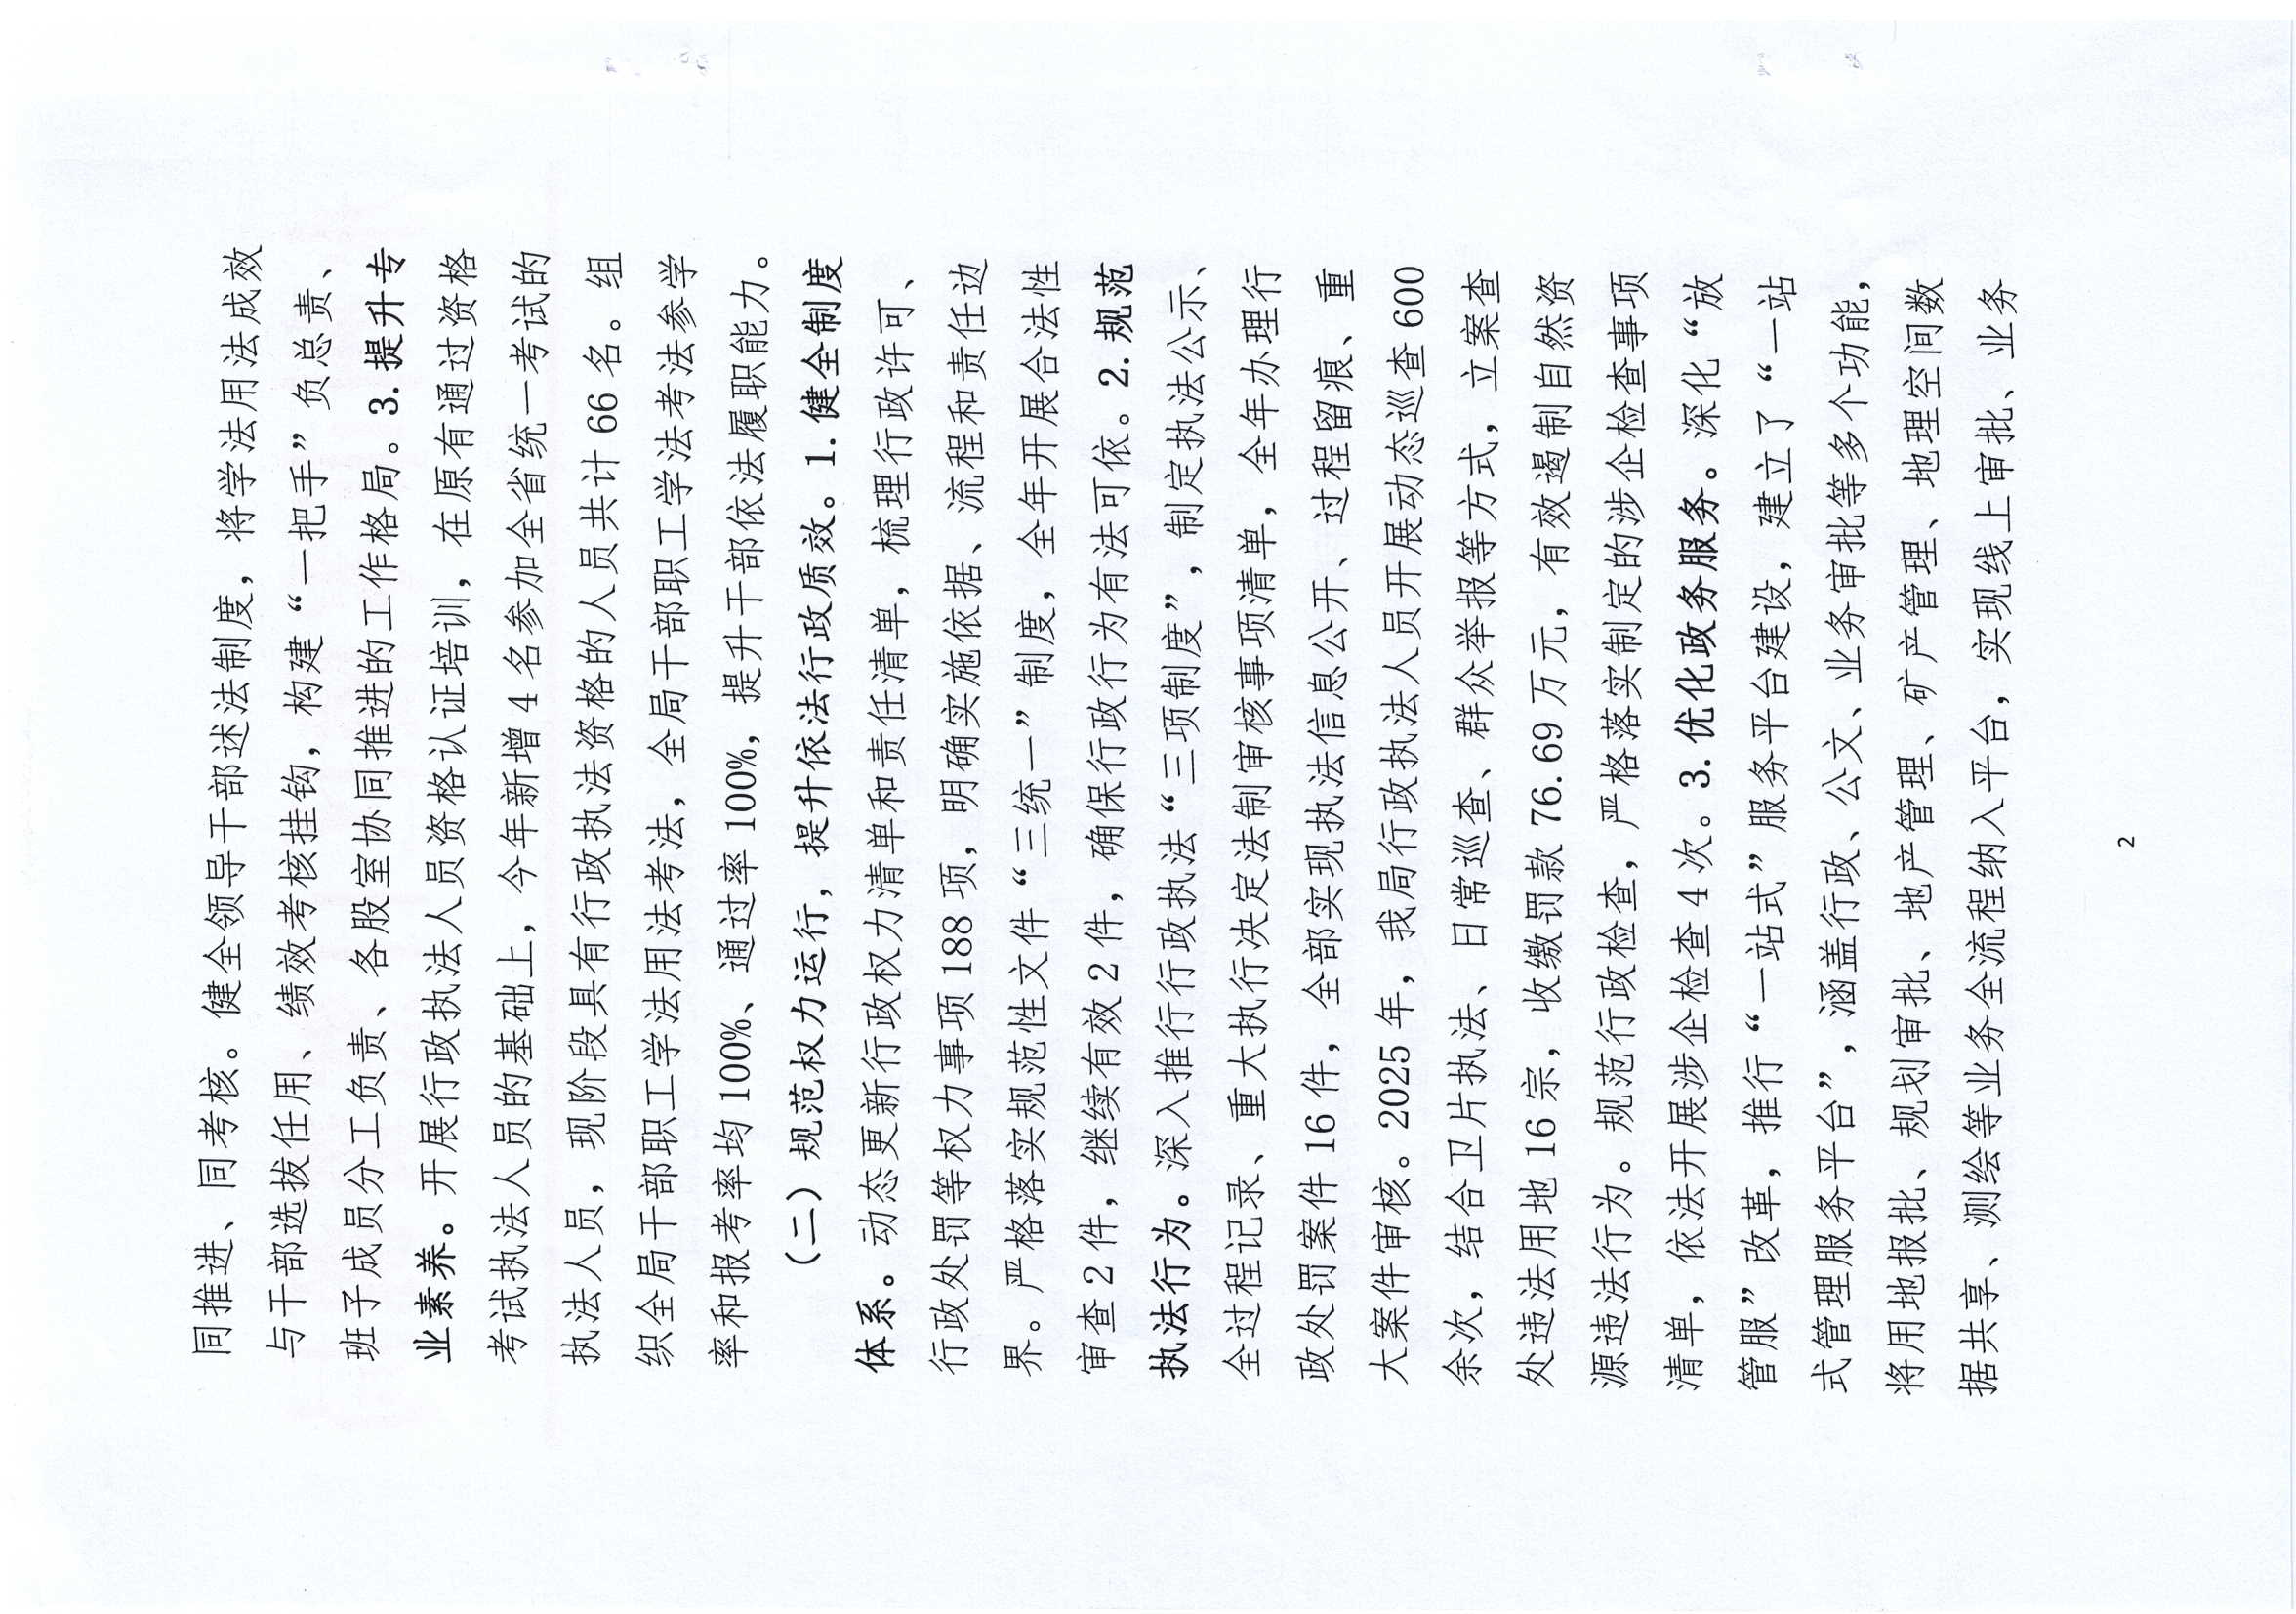 同推进、同考核。健全领导干部述法制度，将学法用法成效
与干部选拔任用、绩效考核挂钩，构建“一把手”负总责、
班子成员分工负责、各股室协同推进的工作格局。3.提升专
业素养。开展行政执法人员资格认证培训，在原有通过资格
考试执法人员的基础上，今年新增4名参加全省统一考试的
执法人员，现阶段具有行政执法资格的人员共计66名。组
织全局干部职工学法用法考法，全局干部职工学法考法参学
率和报考率均100%、通过率100%，提升干部依法履职能力。
（二）规范权力运行，提升依法行政质效。1.健全制度
体系。动态更新行政权力清单和责任清单，梳理行政许可、
行政处罚等权力事项188项，明确实施依据、流程和责任边
界。严格落实规范性文件“三统一”制度，全年开展合法性
审查2件，继续有效2件，确保行政行为有法可依。2.规范
执法行为。深入推行行政执法“三项制度”，制定执法公示、
全过程记录、重大执行决定法制审核事项清单，全年办理行
政处罚案件16件，全部实现执法信息公开、过程留痕、重
大案件审核。2025年，我局行政执法人员开展动态巡查600
余次，结合卫片执法、日常巡查、群众举报等方式，立案查
处违法用地16宗，收缴罚款76.69万元，有效遏制自然资
源违法行为。规范行政检查，严格落实制定的涉企检查事项
清单，依法开展涉企检查4次。3.优化政务服务。深化“放
管服”改革，推行“一站式”服务平台建设，建立了“一站
式管理服务平台”，涵盖行政、公文、业务审批等多个功能，
将用地报批、规划审批、地产管理、矿产管理、地理空间数
据共享、测绘等业务全流程纳入平台，实现线上审批、业务
2